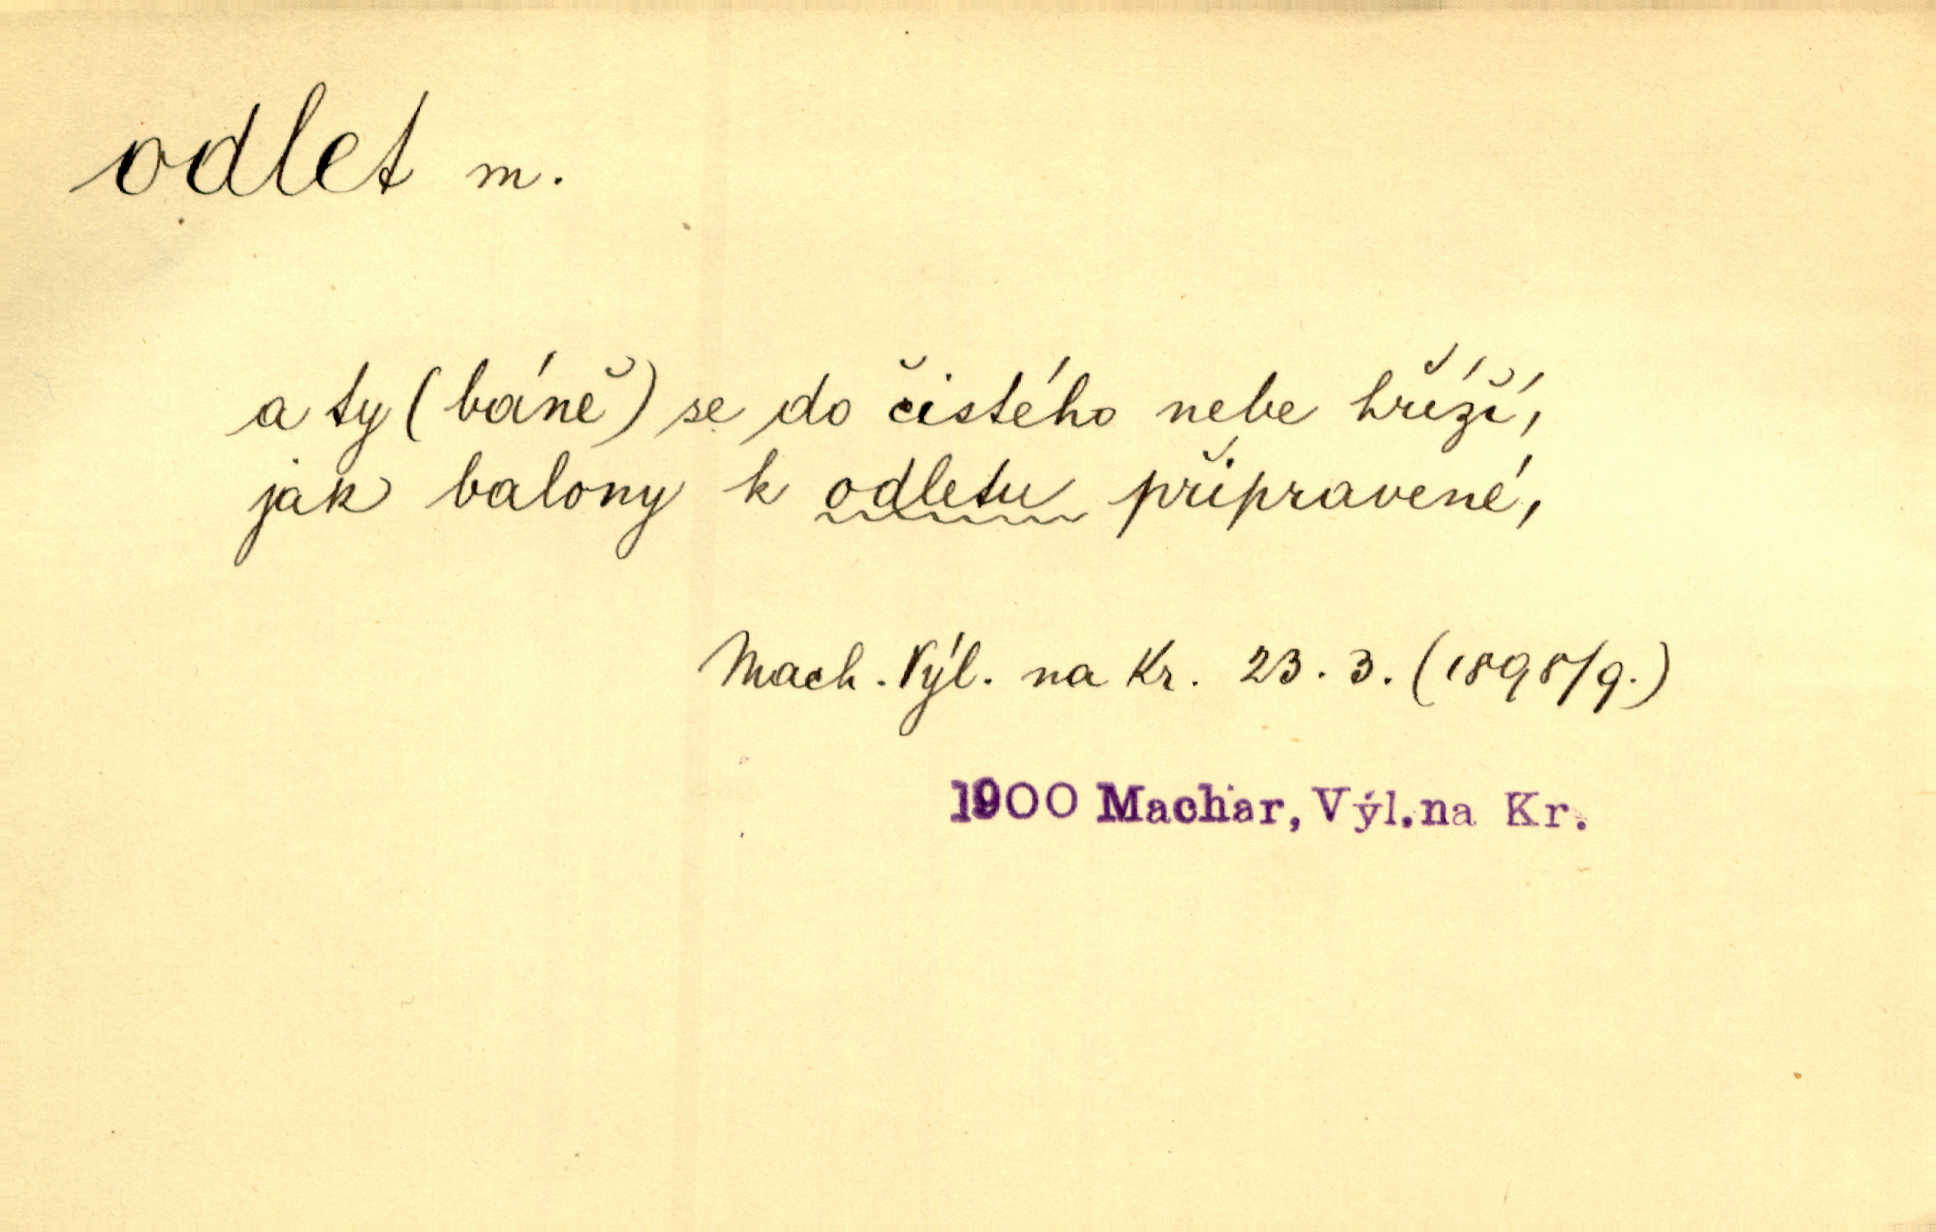 odlet m.
a ty (báně) se do čistého nebe hříží,
jak balony k odletu připravené,
Mach. Výl. na Kr. 23. 3. (1898/9.)
1900 Machar, Výl. na Kr.